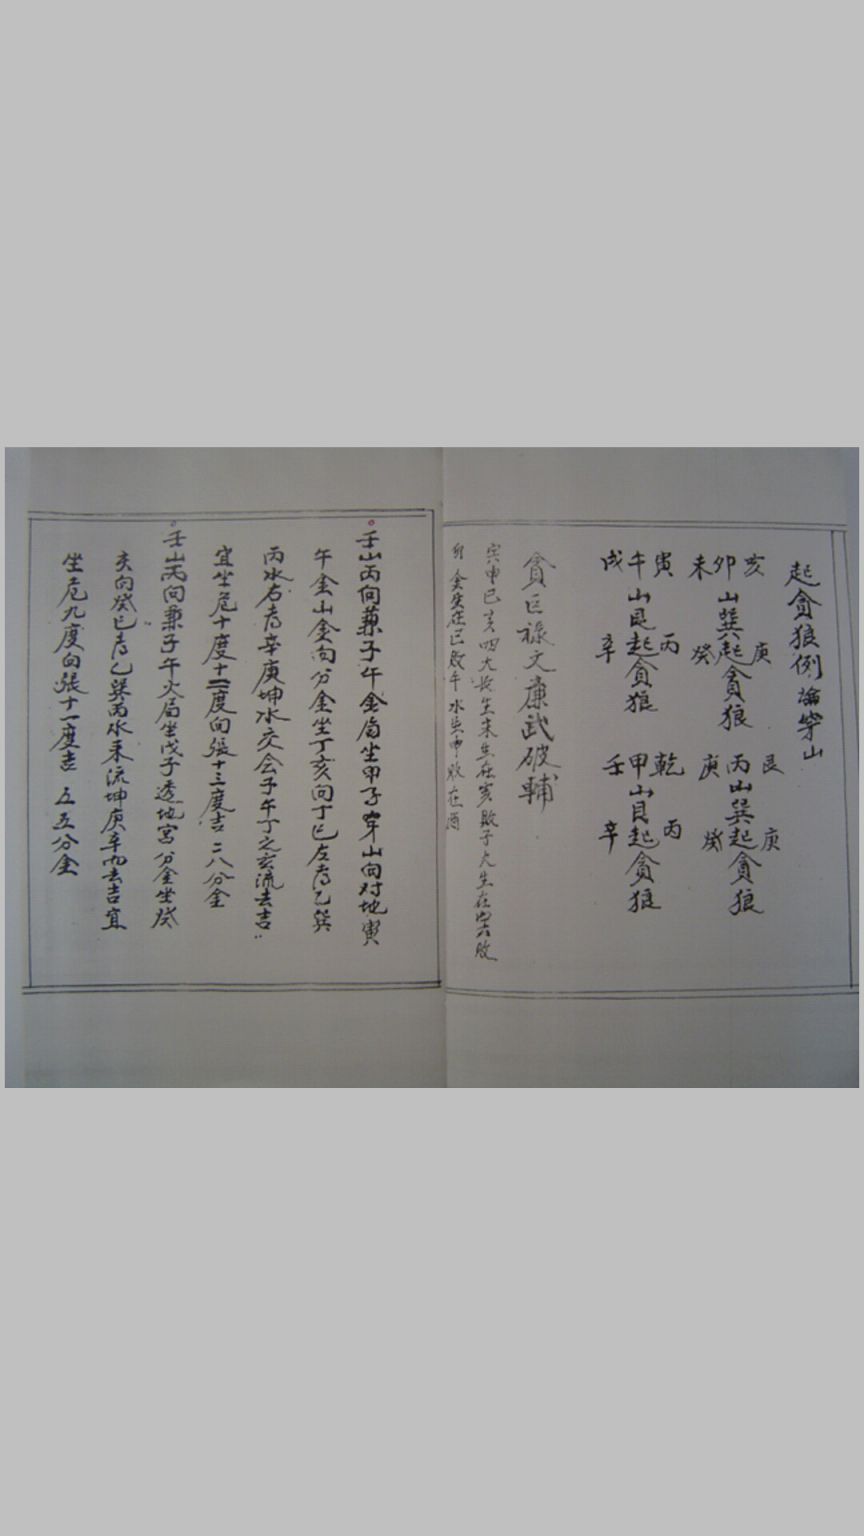 起貪狼例論穿山
亥卯未山巽起貪狼 庚癸
艮丙庚山巽起貪狼 庚癸
寅午戌山艮起貪狼 丙辛
乾甲壬山艮起貪狼 丙辛
貪巨祿文廉武破輔
寅申巳亥四大長生木生在亥敗子火生在寅敗
卯金生在巳敗午水生申敗在酉
壬山丙向兼子午金局坐甲子穿山向对地寅
午金山金向分金坐丁亥向丁巳左耑乙巽
丙水右耑辛庚坤水交会子午丁之亥流去吉
宜坐危十度十二度向張十三度吉二八分金
壬山丙向兼子午火局坐戊子透地宮分金坐癸
亥向癸巳耑乙巽丙水来流坤庚辛而去吉宜
坐危九度向張十一度吉 五五分金